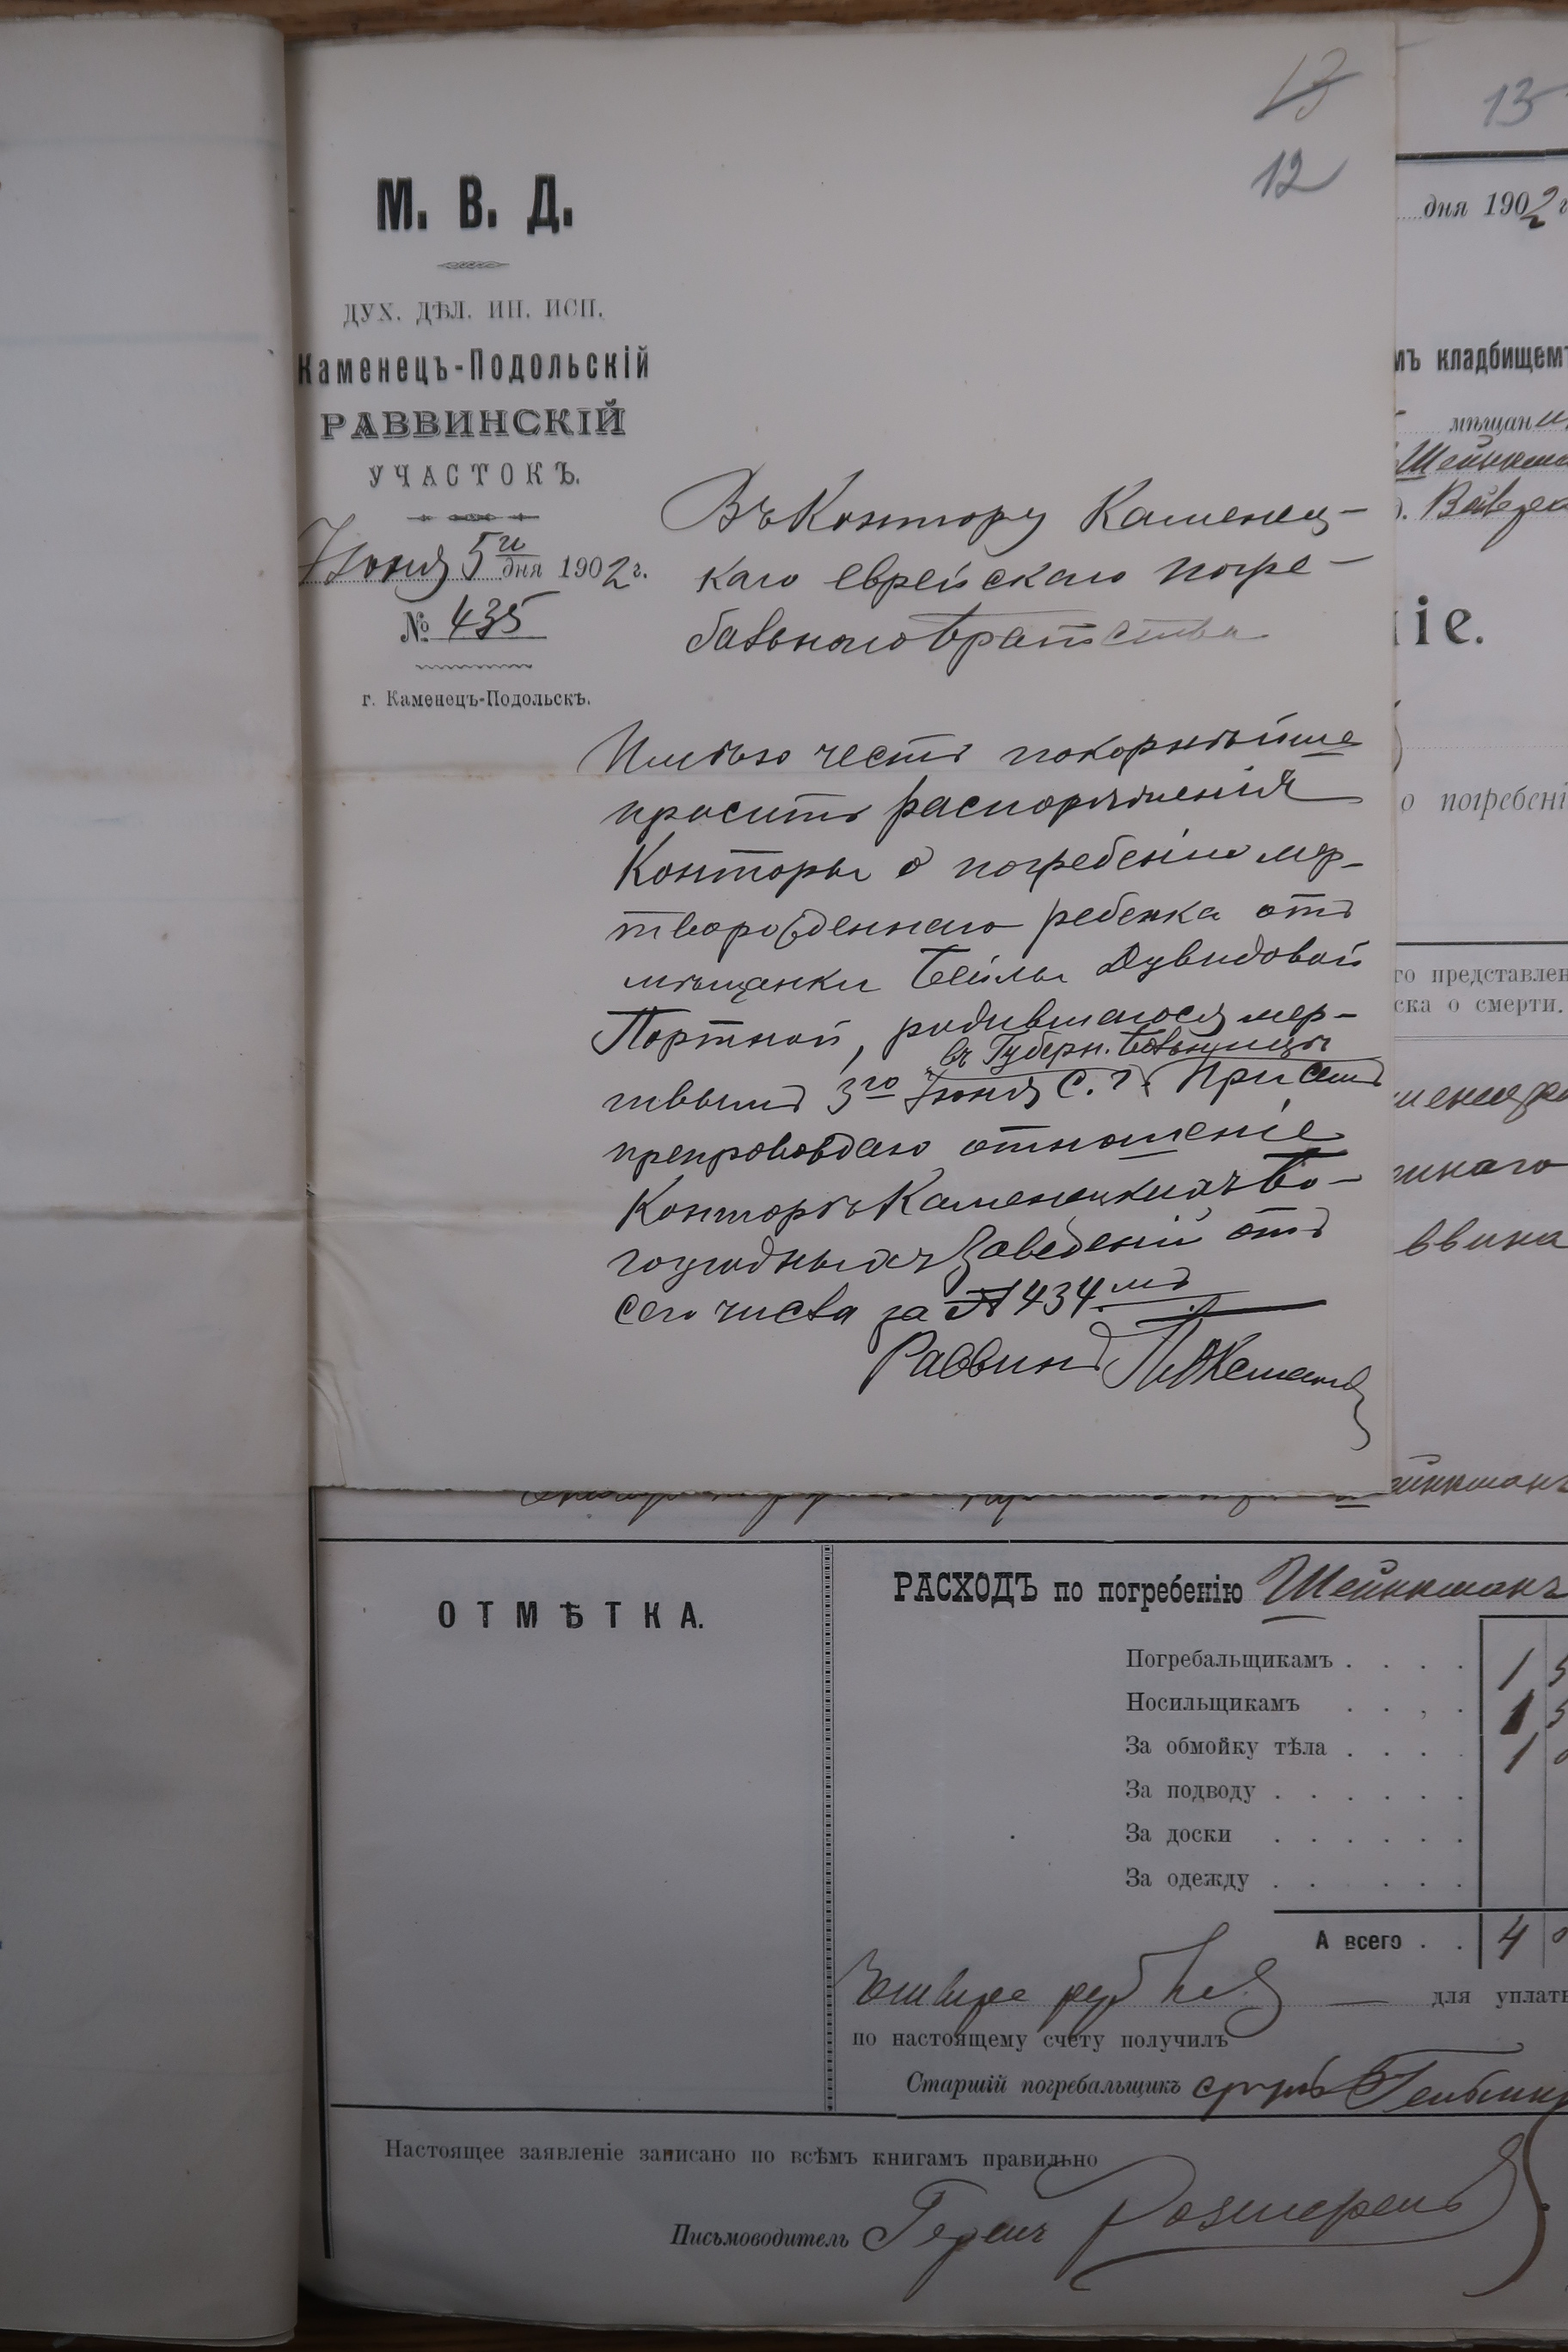 13
12
М. В. Д.
ДУХ. ДѢЛ. ИН. ИСП.
Каменецъ-Подольскій
РАВВИНСКІЙ
УЧАСТОКЪ.
Іюня 5го дня 1902 г.
№ 435
г. Каменецъ-Подольскъ.
Въ Контору Каменец-
каго еврейскаго погре-
бальнаго братства
Имѣю честь покорнѣйше
просить распоряженія
Конторы о погребеніи мер-
творожденнаго ребенка отъ
мѣщанки Бейлы Дувидовой
Портной, родившагося мер-
въ Губерн. больницѣ
твымъ 3го Іюня с. г. При семъ
препровождаю отношеніе
Конторѣ Каменецкихъ Бо-
гоугодныхъ Заведеній отъ
сего числа за № 434мъ
Раввинъ
13
дня 1902 г
мъ кладбищемъ
мѣщан
Шейнкма
іе.
о погребені
го представлен
ска о смерти.
ввина
ОТМѢТКА.
РАСХОДЪ по погребенію Шейнкманъ
Погребальщикамъ . . . . 1 5
Носильщикамъ . . . . 1 5
За обмойку тѣла . . . . 1 0
За подводу . . . . . .
За доски . . . . . .
За одежду . . . . . .
А всего . . 4 0
руб — для уплаты
по настоящему счету получилъ
Старшій погребальщикъ
Настоящее заявленіе записано по всѣмъ книгамъ правильно
Письмоводитель